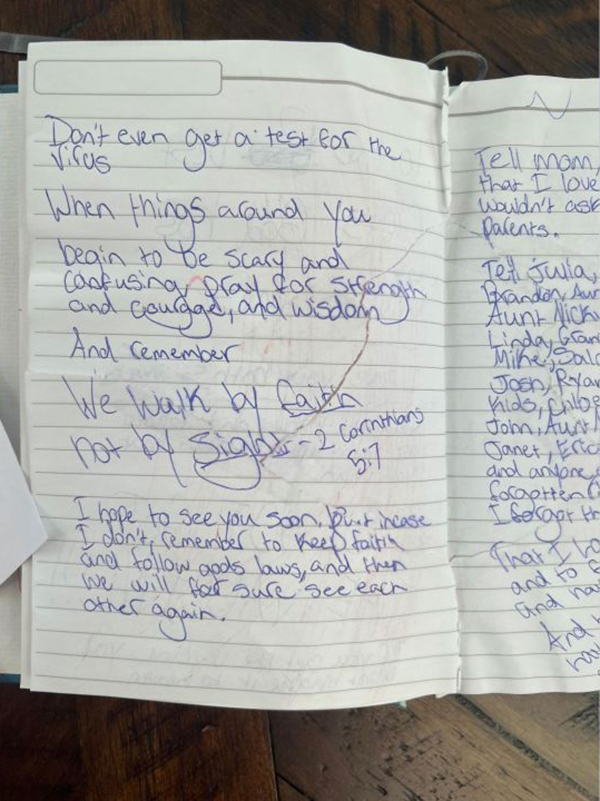 Don't even get a test for the
Virus
When things around you
begin to be scary and
confusing, pray for strength
and courage, and wisdom
And remember
We walk by faith
not by sight -- 2 Corinthians
5:7
I hope to see you soon. But incase
I don't, remember to keep faith
and follow gods laws, and then
we will for sure see each
other again.
Tell mom,
that I love
wouldn't ask
parents.
Tell Julia,
Brandon, Aun
Aunt Nick
Linda, Gran
Mike,
Josh, Ryan
Kids, Chloe
John, Aunt
Janet, Eric
and anyone
forgotten
I forgot th
That I lo
and to
and
And